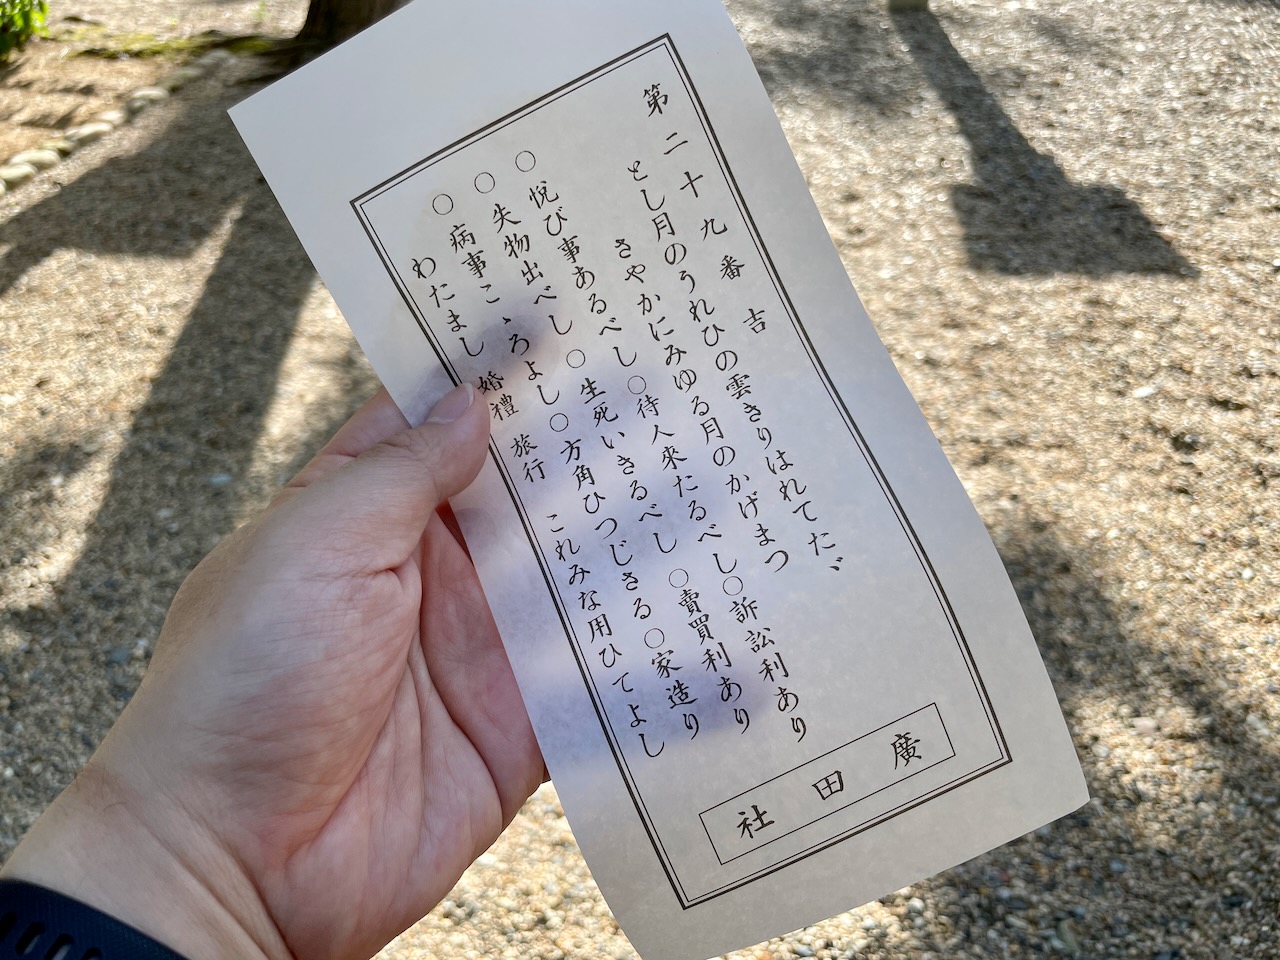 第二十九番吉
とし月のうれひの雲きりはれてたゞ
さやかにみゆる月のかげまつ
○悦び事あるべし○待人來たるべし○訴訟利あり
○失物出べし○生死いきるべし○賣買利あり
○病事こゝろよし○方角ひつじさる○家造り
わたまし 婚禮 旅行 これみな用ひてよし
廣田社